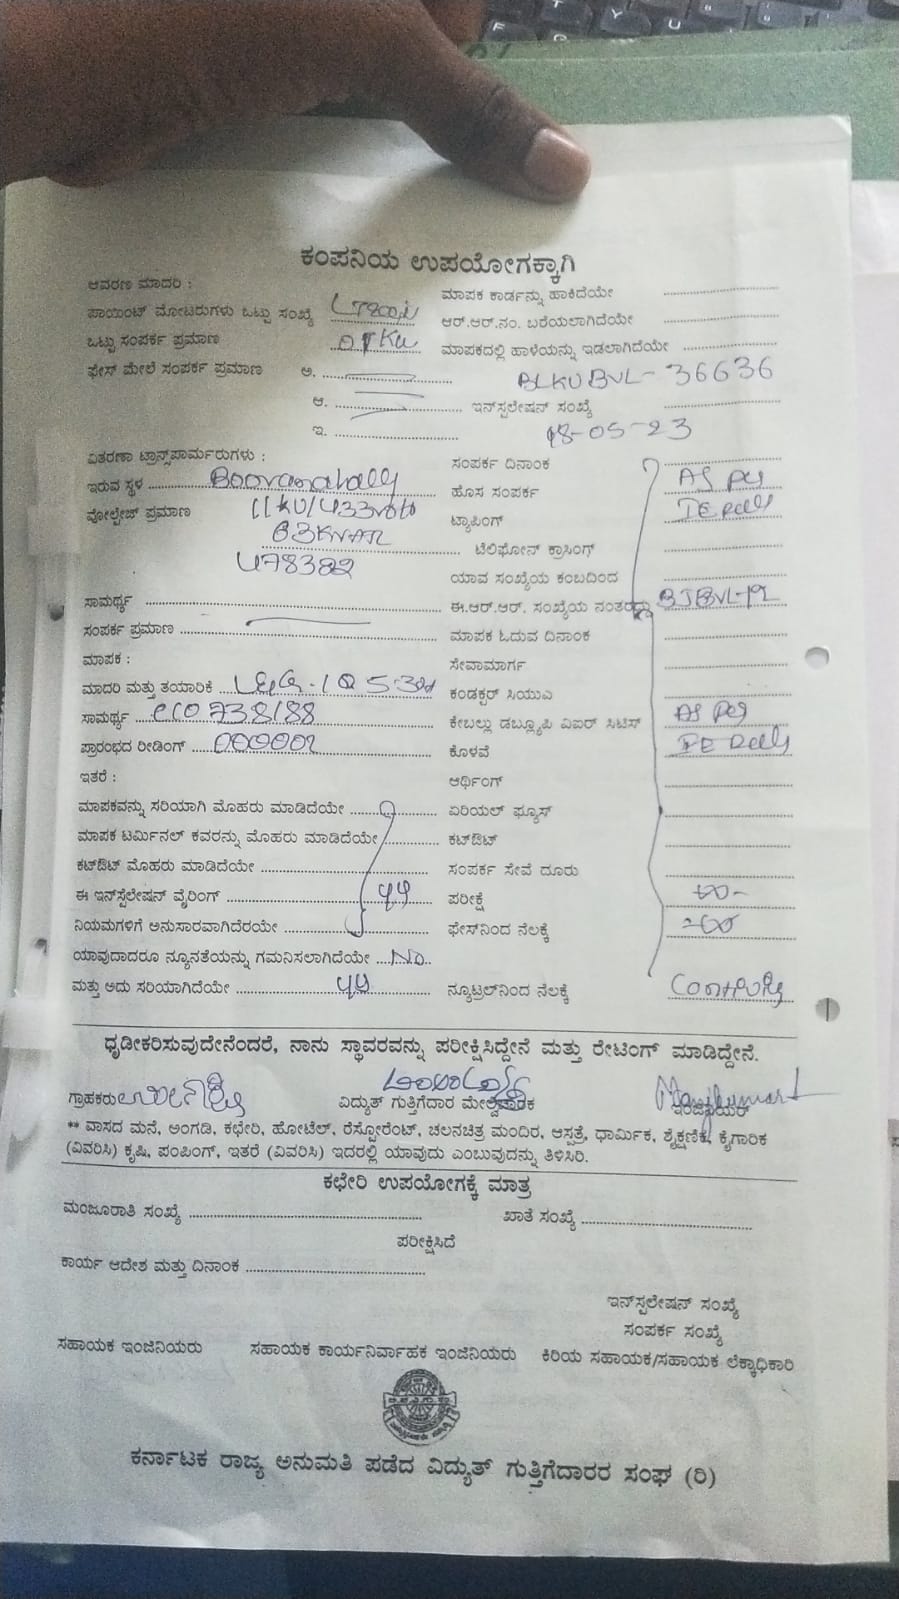 ಕಂಪನಿಯ ಉಪಯೋಗಕ್ಕಾಗಿ
ಆವರಣ ಮಾದರಿ :
ಮಾಪಕ ಕಾರ್ಡನ್ನು ಹಾಕಿದೆಯೇ
ಪಾಯಿಂಟ್ ಮೋಟರುಗಳು ಒಟ್ಟು ಸಂಖ್ಯೆ
ಆರ್.ಆರ್.ನಂ. ಬರೆಯಲಾಗಿದೆಯೇ
ಒಟ್ಟು ಸಂಪರ್ಕ ಪ್ರಮಾಣ
ಮಾಪಕದಲ್ಲಿ ಹಾಳೆಯನ್ನು ಇಡಲಾಗಿದೆಯೇ
ಫೇಸ್ ಮೇಲೆ ಸಂಪರ್ಕ ಪ್ರಮಾಣ ಅ.
BLKUBVL-36636
ಆ. ಇನ್‌ಸ್ಟಲೇಷನ್ ಸಂಖ್ಯೆ
ಇ. 18-05-23
ವಿತರಣಾ ಟ್ರಾನ್ಸ್‌ಪಾರ್ಮರುಗಳು :
ಸಂಪರ್ಕ ದಿನಾಂಕ
ಇರುವ ಸ್ಥಳ Booranahally
ಹೊಸ ಸಂಪರ್ಕ AS per
ವೋಲ್ಟೇಜ್ ಪ್ರಮಾಣ 11KV/433volt
ಟ್ಯಾಪಿಂಗ್
63KVAR
ಟೆಲಿಫೋನ್ ಕ್ರಾಸಿಂಗ್
478382
ಯಾವ ಸಂಖ್ಯೆಯ ಕಂಬದಿಂದ
ಸಾಮರ್ಥ್ಯ
ಈ.ಆರ್.ಆರ್. ಸಂಖ್ಯೆಯ ನಂತರದ್ದು
ಸಂಪರ್ಕ ಪ್ರಮಾಣ
ಮಾಪಕ ಓದುವ ದಿನಾಂಕ
ಮಾಪಕ :
ಸೇವಾಮಾರ್ಗ
ಮಾದರಿ ಮತ್ತು ತಯಾರಿಕೆ
ಕಂಡಕ್ಟರ್ ಸಿಯುಎ
ಸಾಮರ್ಥ್ಯ
ಕೇಬಲ್ಲು ಡಬ್ಲ್ಯೂಪಿ ವಿಐರ್ ಸಿಟಿಸ್ AS per
ಪ್ರಾರಂಭದ ರೀಡಿಂಗ್
ಕೊಳವೆ
ಇತರೆ :
ಆರ್ಥಿಂಗ್
ಮಾಪಕವನ್ನು ಸರಿಯಾಗಿ ಮೊಹರು ಮಾಡಿದೆಯೇ
ಏರಿಯಲ್ ಫ್ಯೂಸ್
ಮಾಪಕ ಟರ್ಮಿನಲ್ ಕವರನ್ನು ಮೊಹರು ಮಾಡಿದೆಯೇ
ಕಟ್‌ಔಟ್
ಕಟ್‌ಔಟ್ ಮೊಹರು ಮಾಡಿದೆಯೇ
ಸಂಪರ್ಕ ಸೇವೆ ದೂರು
ಈ ಇನ್‌ಸ್ಟೆಲೇಷನ್ ವೈರಿಂಗ್
ಪರೀಕ್ಷೆ
ನಿಯಮಗಳಿಗೆ ಅನುಸಾರವಾಗಿದೆರಯೇ
ಫೇಸ್‌ನಿಂದ ನೆಲಕ್ಕೆ
ಯಾವುದಾದರೂ ನ್ಯೂನತೆಯನ್ನು ಗಮನಿಸಲಾಗಿದೆಯೇ No
ಮತ್ತು ಅದು ಸರಿಯಾಗಿದೆಯೇ
ನ್ಯೂಟ್ರಲ್‌ನಿಂದ ನೆಲಕ್ಕೆ
ಧೃಡೀಕರಿಸುವುದೇನೆಂದರೆ, ನಾನು ಸ್ಥಾವರವನ್ನು ಪರೀಕ್ಷಿಸಿದ್ದೇನೆ ಮತ್ತು ರೇಟಿಂಗ್ ಮಾಡಿದ್ದೇನೆ.
ಗ್ರಾಹಕರು ವಿದ್ಯುತ್ ಗುತ್ತಿಗೆದಾರ ಮೇಲ್ವಿಚಾರಕ ಇಂಜಿನಿಯರ್
** ವಾಸದ ಮನೆ, ಅಂಗಡಿ, ಕಛೇರಿ, ಹೋಟೆಲ್, ರೆಸ್ಟೋರೆಂಟ್, ಚಲನಚಿತ್ರ ಮಂದಿರ, ಆಸ್ಪತ್ರೆ, ಧಾರ್ಮಿಕ, ಶೈಕ್ಷಣಿಕ, ಕೈಗಾರಿಕ
(ವಿವರಿಸಿ) ಕೃಷಿ, ಪಂಪಿಂಗ್, ಇತರೆ (ವಿವರಿಸಿ) ಇದರಲ್ಲಿ ಯಾವುದು ಎಂಬುವುದನ್ನು ತಿಳಿಸಿರಿ.
ಕಛೇರಿ ಉಪಯೋಗಕ್ಕೆ ಮಾತ್ರ
ಮಂಜೂರಾತಿ ಸಂಖ್ಯೆ ಖಾತೆ ಸಂಖ್ಯೆ
ಪರೀಕ್ಷಿಸಿದೆ
ಕಾರ್ಯ ಆದೇಶ ಮತ್ತು ದಿನಾಂಕ
ಇನ್‌ಸ್ಪಲೇಷನ್ ಸಂಖ್ಯೆ
ಸಂಪರ್ಕ ಸಂಖ್ಯೆ
ಸಹಾಯಕ ಇಂಜಿನಿಯರು ಸಹಾಯಕ ಕಾರ್ಯನಿರ್ವಾಹಕ ಇಂಜಿನಿಯರು ಕಿರಿಯ ಸಹಾಯಕ/ಸಹಾಯಕ ಲೆಕ್ಕಾಧಿಕಾರಿ
ಕರ್ನಾಟಕ ರಾಜ್ಯ ಅನುಮತಿ ಪಡೆದ ವಿದ್ಯುತ್ ಗುತ್ತಿಗೆದಾರರ ಸಂಘ (ರಿ)